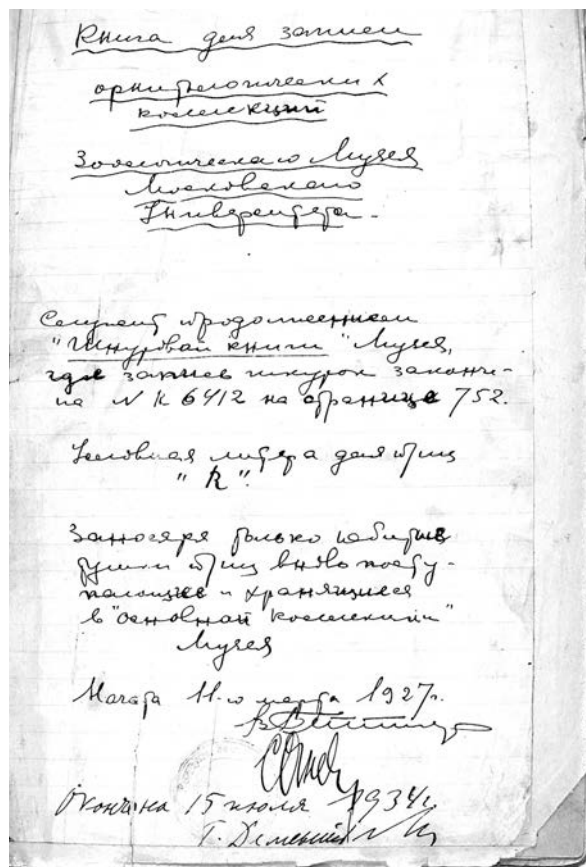 Книга для записи
орнитологических
коллекций
Зоологического Музея
Московского
Университета.
Служит продолжением
"Шнуровой книги" Музея,
где запись шкурок закончи-
на N R 6412 на странице 752.
Условная литера для птиц
"R".
Заносятся только
тушки птиц вновь посту-
пающие и хранящиеся
в "основной коллекции"
Музея
Начата 11-го марта 1927г.
Окончена 15 июля 1934г.
Г. Дементьев